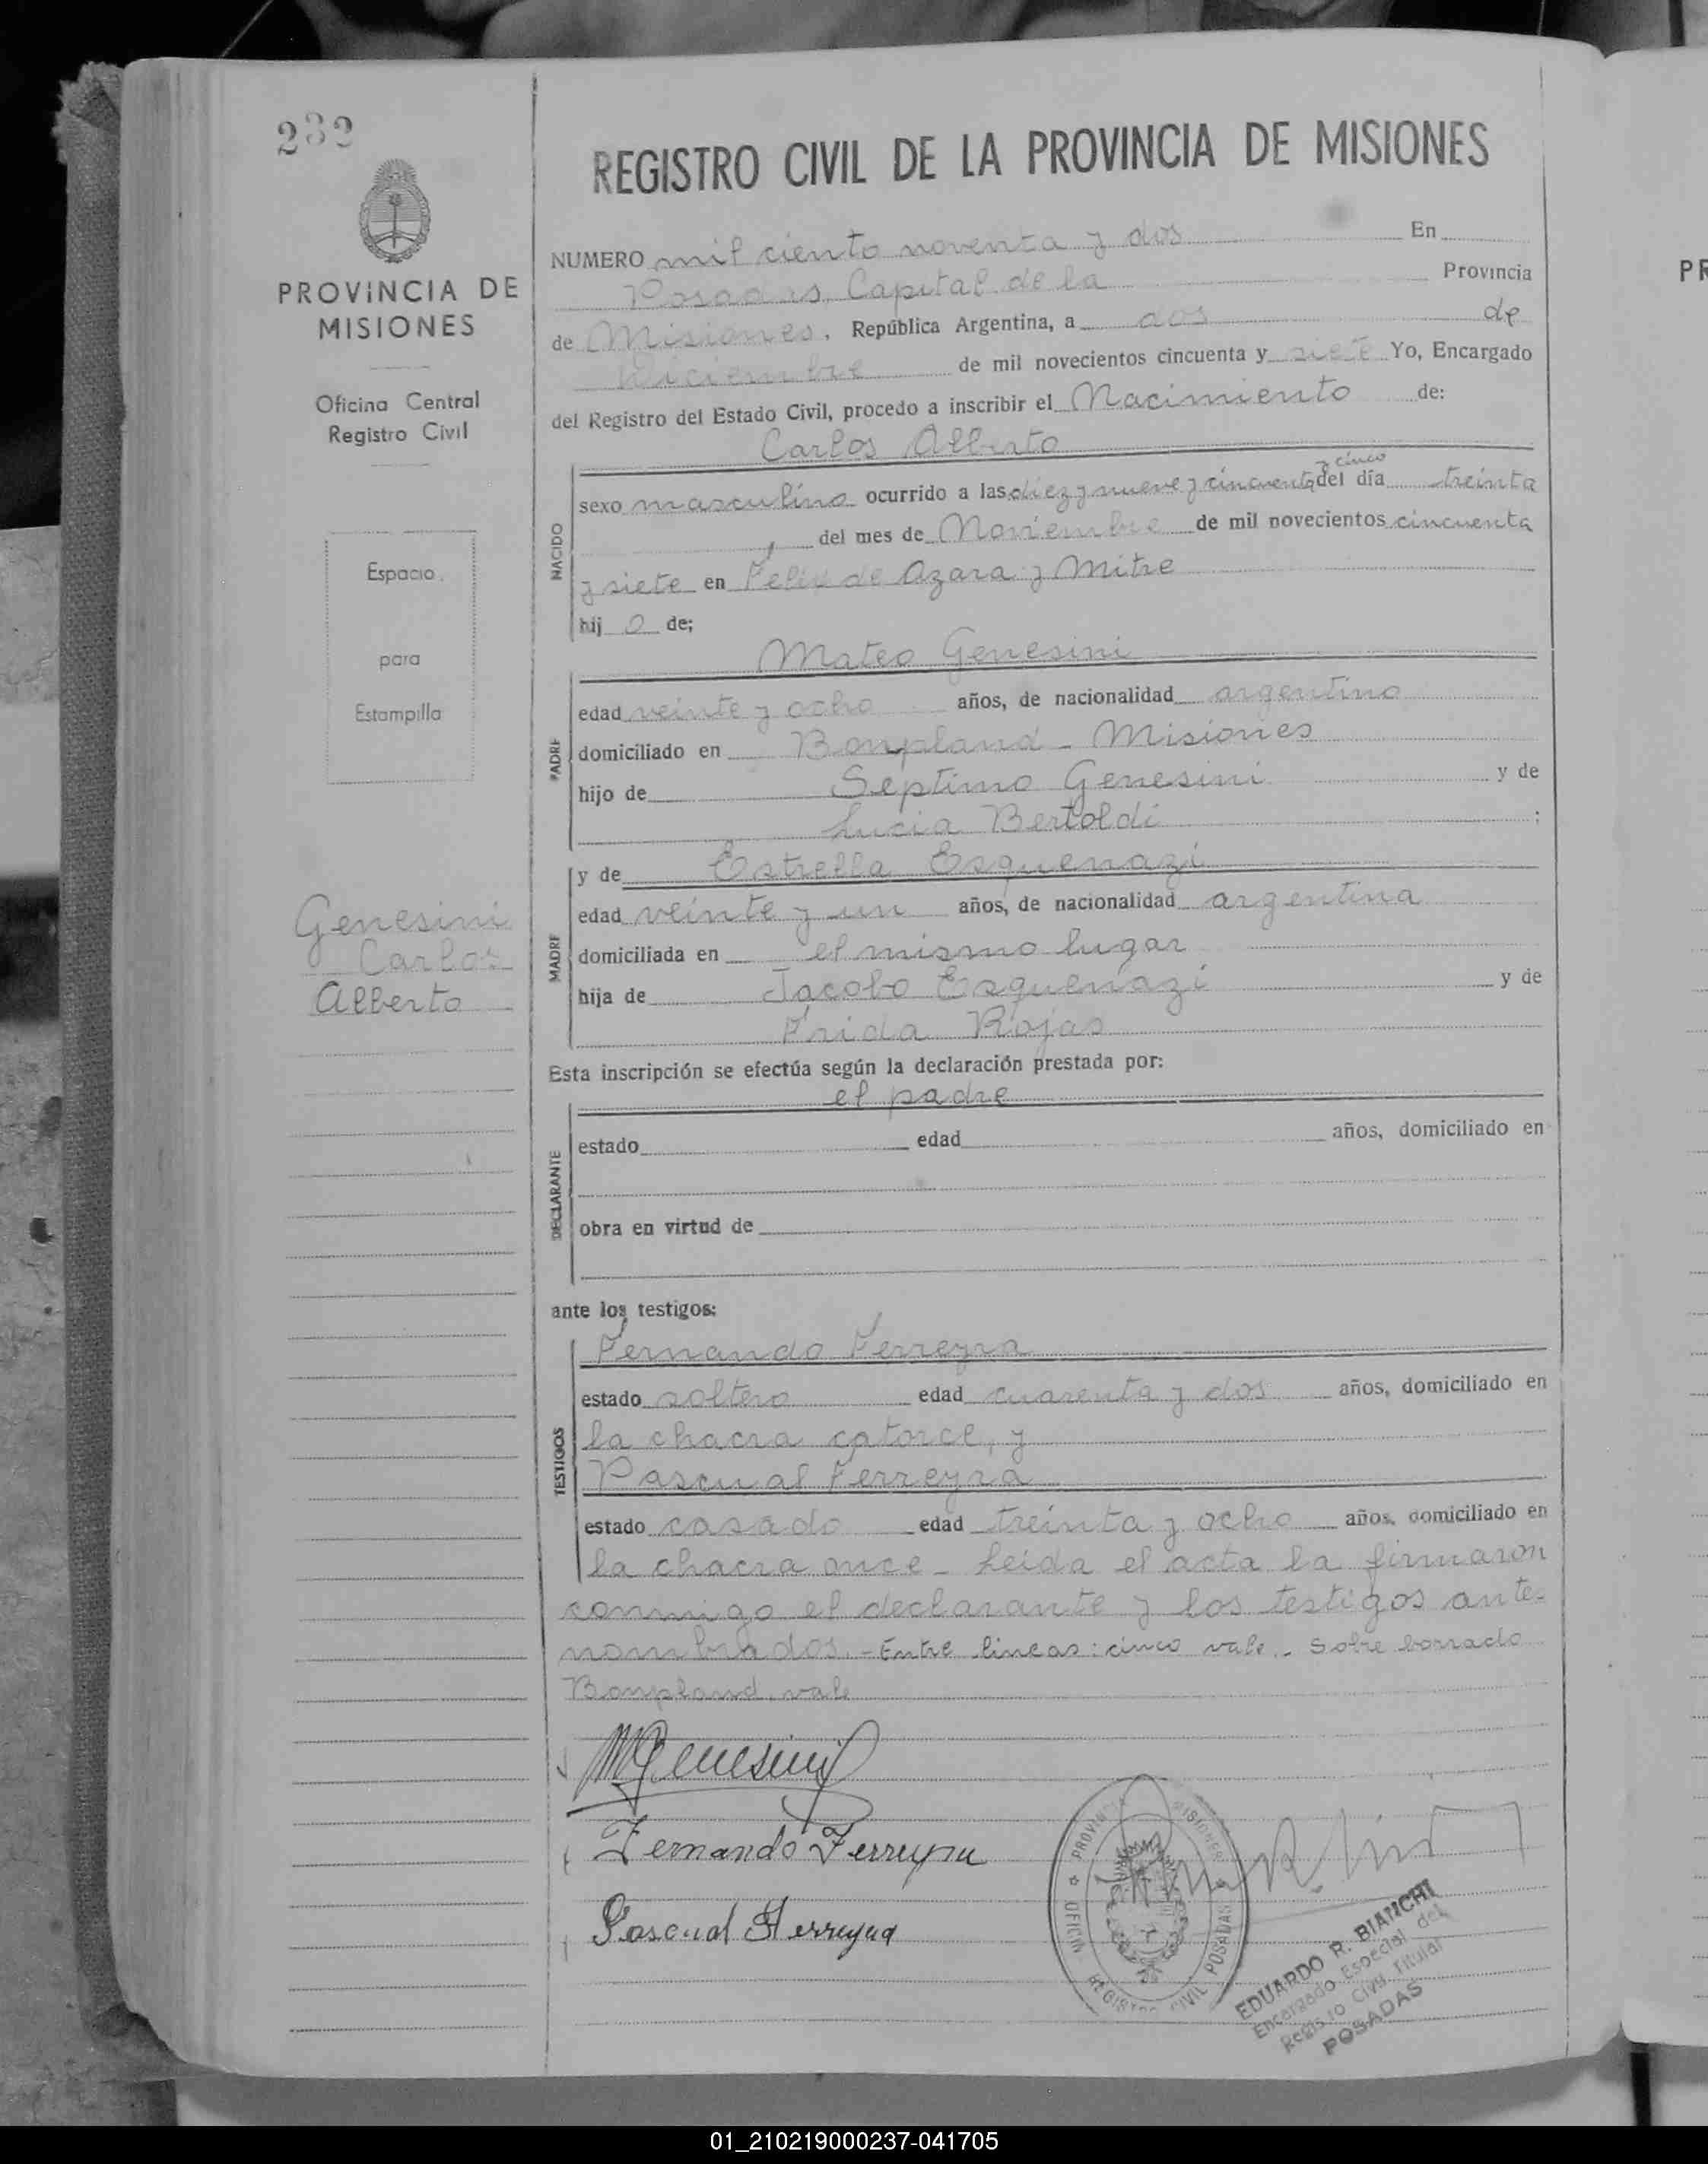 232
PROVINCIA DE
MISIONES
Oficina Central
Registro Civil
Espacio
para
Estampilla
Genesini
Carlos
Alberto
REGISTRO CIVIL DE LA PROVINCIA DE MISIONES
NUMERO mil ciento noventa y dos En
Posadas, Capital de la Provincia
de Misiones, República Argentina, a dos de
Diciembre de mil novecientos cincuenta y siete Yo, Encargado
del Registro del Estado Civil, procedo a inscribir el Nacimiento de:
Carlos Alberto
y cinco
NACIDO
sexo masculino ocurrido a las diez y nueve y cincuenta del día treinta
del mes de Noviembre de mil novecientos cincuenta
y siete en Félix de Azara y Mitre
hij o de;
Mateo Genesini
PADRE
edad veinte y ocho años, de nacionalidad argentino
domiciliado en Bonpland - Misiones
hijo de Séptimo Genesini y de
Lucia Bertoldi ;
y de Estrella Esquenazi
MADRE
edad veinte y un años, de nacionalidad argentina
domiciliada en el mismo lugar
hija de Jacobo Esquenazi y de
Frida Rojas
Esta inscripción se efectúa según la declaración prestada por:
el padre
DECLARANTE
estado edad años, domiciliado en
obra en virtud de
ante los testigos:
Fernando Ferreyra
TESTIGOS
estado soltero edad cuarenta y dos años, domiciliado en
la chacra catorce, y
Pascual Ferreyra
estado casado edad treinta y ocho años, domiciliado en
la chacra once - Leida el acta la firmaron
conmigo el declarante y los testigos ante-
nombrados. - Entre lineas: cinco vale. - Sobre borrado
Bonpland. vale
MGenesini
Fernando Ferreyra
Pascual Ferreyra
PROVINCIA MISIONES
OFICINA REGISTRO CIVIL POSADAS
EDUARDO R. BIANCHI
Encargado Especial del
Registro Civil Titular
POSADAS
01_210219000237-041705